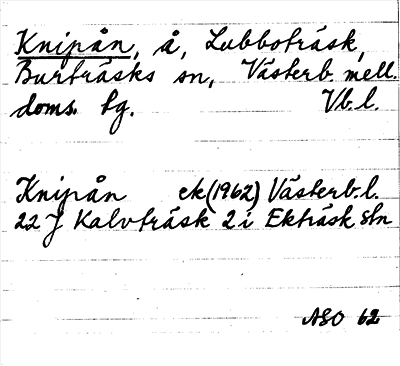 Knipån, å, Lubboträsk,
Burträsks sn, Västerb. mell.
doms. tg. Vb. l.
Knipån ek (1962) Västerb. l.
22 J Kalvträsk 2 i Ekträsk stn
ASO 62